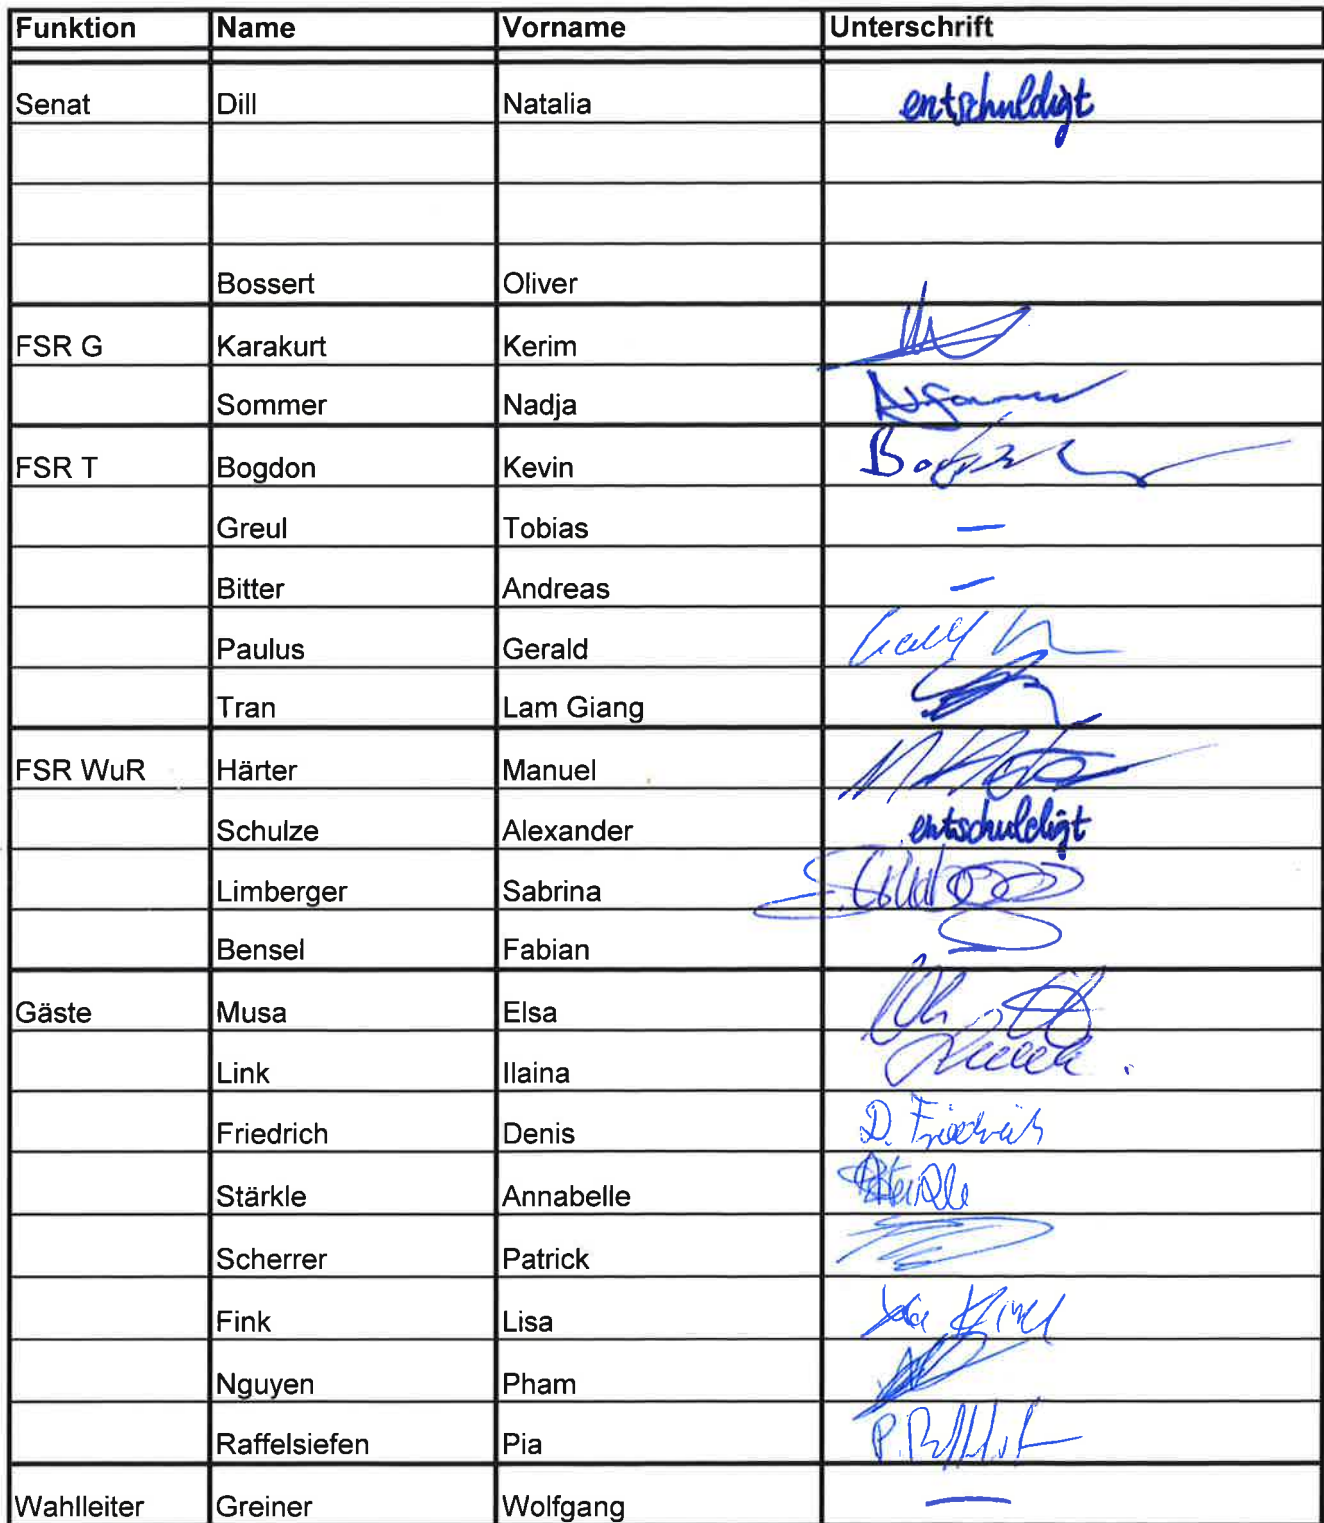 Funktion Name Vorname Unterschrift
Senat Dill Natalia entschuldigt
Bossert Oliver
FSR G Karakurt Kerim
Sommer Nadja
FSR T Bogdon Kevin
Greul Tobias —
Bitter Andreas —
Paulus Gerald
Tran Lam Giang
FSR WuR Härter Manuel
Schulze Alexander entschuldigt
Limberger Sabrina
Bensel Fabian —
Gäste Musa Elsa
Link Ilaina
Friedrich Denis D. Friedrich
Stärkle Annabelle
Scherrer Patrick
Fink Lisa
Nguyen Pham
Raffelsiefen Pia
Wahlleiter Greiner Wolfgang —